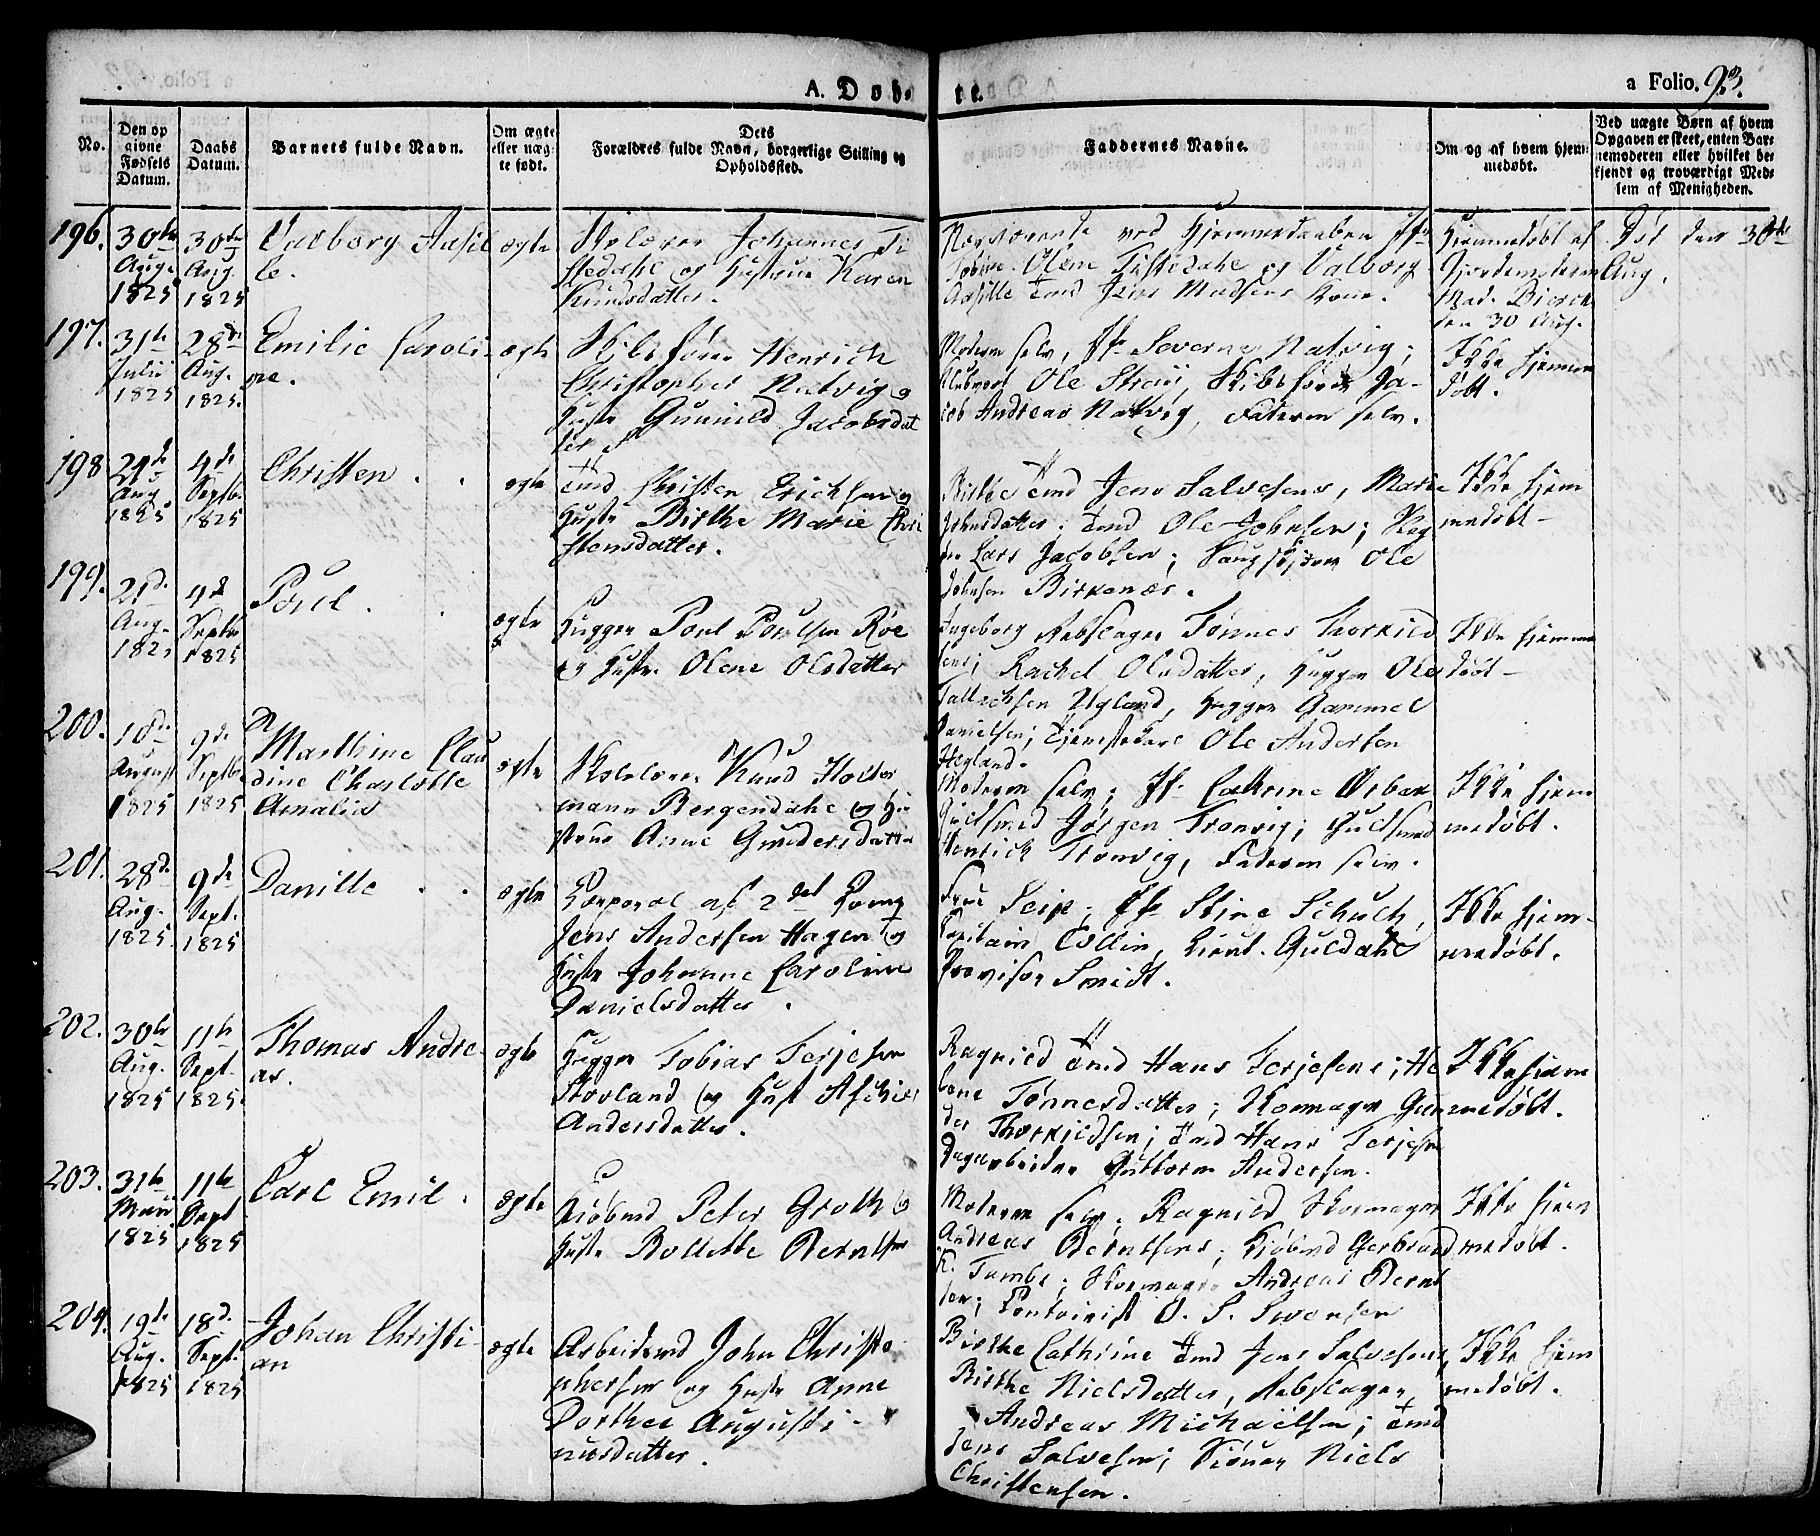 A. Døb- te.
a Folio. 93.
No.
Den op givne Fødsels Datum.
Daabs Datum.
Barnets fulde Navn.
Om ægte eller uægte født.
Dets Forældres fulde Navn, borgerlige Stilling og Opholdssted.
Faddernes Navne.
Om og af hvem hjemmedøbt.
Ved uægte Børn af hvem Opgaven er skeet, enten Barnemoderen eller hvilket bekjendt og troværdigt Medlem af Menigheden.
196.
30te Aug. 1825
30te Aug. 1825
Valborg Aasil
le.
ægte
Skolærer Johannes Ti
stedahl og Hustrue Karen
Knudsdatter.
Nærværende ved Hjemmedaaben Jfr
Olene Tistedahl og Valborg
Aasille Tmd Jens Madsens Kone.
Hjemmedøbt af
Gjordemoderen
Mad.
sen 30 Aug.
Død den 30te
Aug.
197.
31te Julii 1825
28de Aug. 1825.
Emilie Caroli-
ne.
ægte
Skibsfører Henrich
Christopher Natvig og
Hustr Gunnild Jacobsdat
ter
Moderen selv, Jfr Severine Natvig;
Ole Strai, Skibsfører Ja-
cob Andreas Natvig, Faderen selv.
Ikke hjemme
døbt.
198
24de Aug. 1825
4de Septbr 1825
Christen . .
ægte
Tmd Christen Erichsen og
Hustr Birthe Marie Chri
stensdatter.
Birthe Tmd Jens Salvesens, Maren
Johnsdatter; Tmd Ole Johnsen;
Lars Jacobsen; Ole
Johnsen Birkenæs.
Ikke hjem
medøbt-
199.
21de Aug. 1825
4de Septbr 1825
Poul . .
ægte
Hugger Poul Poulsen Røe
og Hustr. Olene Olsdatter
Ingeborg Rebslager Tønnes Thorkild
sens; Rachel Olsdatter, Hugger Ole
Tallachsen Ugland, Hugger Gammel
Danielsen; Tjenestekarl Ole Andersen
Hegland.
Ikke hjemme
døbt-
200.
18de August 1825
9de Septbr 1825
Marthine Clau
dine Charlotte
Amalia
ægte
Skolelærer Knud Holter
mann Bergendahl og Hu
strue Anne Gundersdatter
Moderen selv; Jfr Cathrine Ørbæk
Guldsmed Jørgen Tronvig; Guldsmed
Henrich Tronvig, Faderen selv.
Ikke hjem
medøbt.
201.
28de Aug. 1825
9de Sept. 1825
Danille . .
ægte
Corporal af 2det Comp
Jens Andersen Hagen og
Hustr Johanne Caroline
Danielsdatter.
Frue Seip; Jfr Stine Schultz,
Capitain Collin, Lieut. Guldahl
Provisor Smidt.
Ikke hjem-
medøbt.
202.
30te Aug. 1825
11te Sept. 1825.
Thomas Andre
as.
ægte
Hugger Tobias Terjesen
Stovland og Hust
Andersdatter.
Ragnild Tmd Hans Terjesens; He
lene Tønnesdatter; Skomager Gun
der Thorkildsen; Tmd Hans Terjesen
Dagarbeider Guttorm Andersen.
Ikke hjem
medøbt.
203.
31te Maii 1825
11te Sept 1825
Carl Emil.
ægte
Kjøbmd Peter Groth og
Hustr Bollette Berntsen
Moderen selv; Ragnild Skomager
Andreas Berntsens; Kjøbmd Gerbrand
K. Tambs; Skomager Andreas Bernt
sen; Contoirist O. S. Svensen
Ikke hjem
medøbt.
204.
19de Aug. 1825
18de Sept. 1825
Johan Christi-
an
ægte
Arbeidsmd John Christo
phersen og Hustr Anne
Dorthea Augusti-
nusdatter.
Birthe Cathrine Tmd Jens Salvesens
Birthe Nielsdatter, Rebslager
Andreas Michaelsen; Tmd
Jens Salvesen; Niels
Christensen.
Ikke hjem
medøbt.